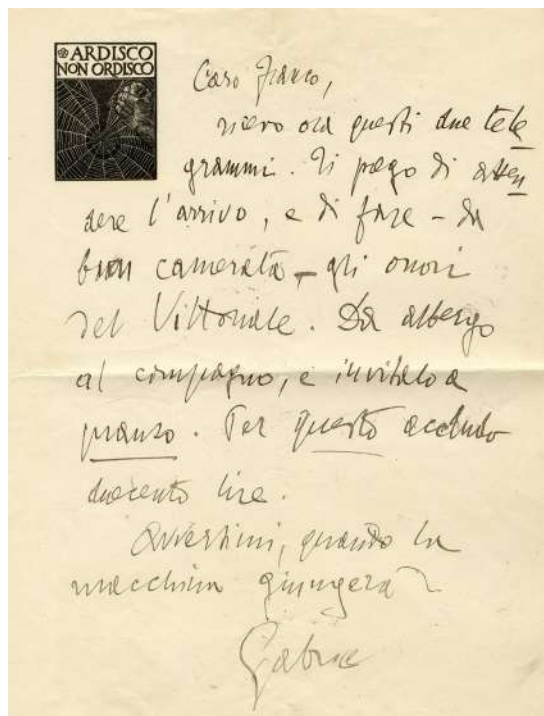 ARDISCO
NON ORDISCO
Caro Franco,
ricevo ora questi due tele
grammi. Ti prego di atten
dere l'arrivo, e di fare - da
buon camerata - gli onori
del Vittoriale. Da albergo
al compagno, e invitalo a
pranzo. Per questo accludo
duecento lire.
Avvertimi, quando la
macchina giungerà
Gabrie